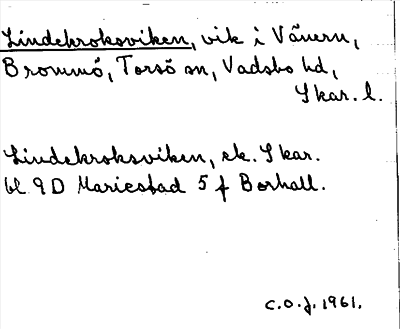 Lindekroksviken, vik i Vänern,
Brommö, Torsö sn, Vadsbo hd,
Skar. l.
Lindekroksviken, ek. Skar.
bl. 9D Mariestad 5 f Borhall.
C.O.J. 1961.